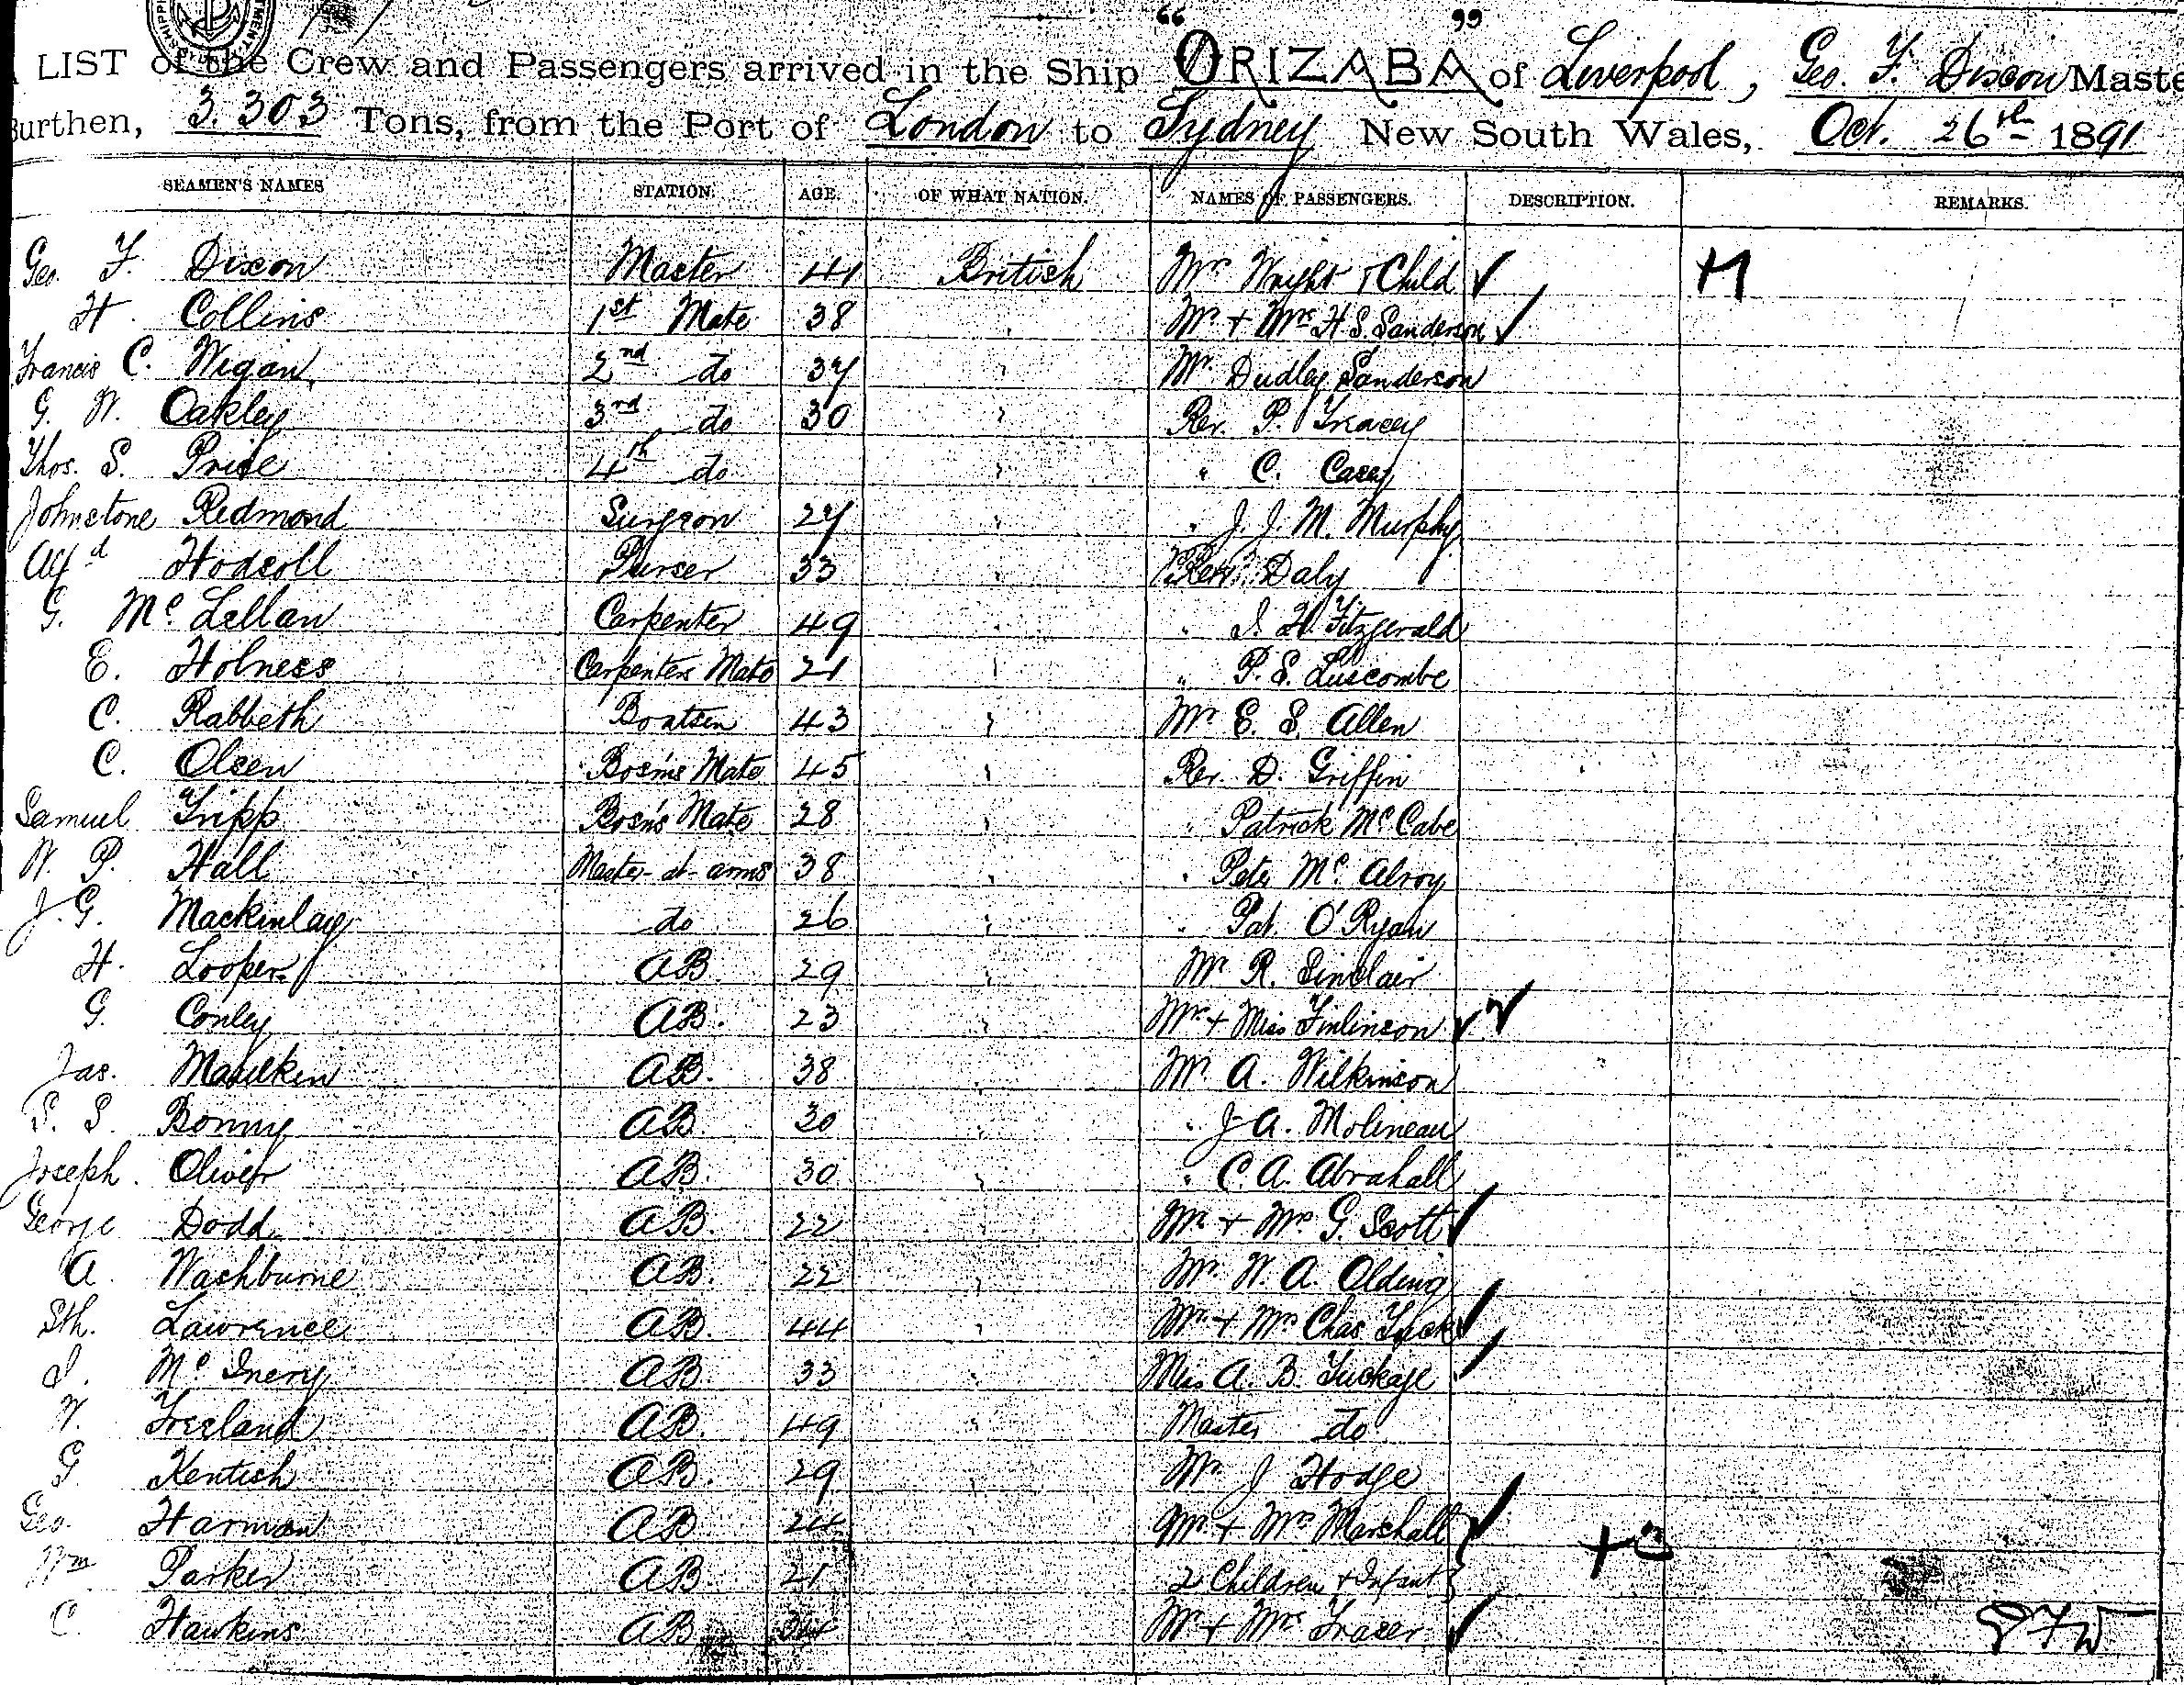 LIST of the Crew and Passengers arrived in the Ship "ORIZABA" of Liverpool, Geo. F. Dixon Maste
Burthen, 3.303 Tons, from the Port of London to Sydney New South Wales, Oct. 26th 1891
SEAMEN'S NAMES STATION. AGE. OF WHAT NATION. NAMES OF PASSENGERS. DESCRIPTION. REMARKS.
Geo. F. Dixon Master 41 British Mrs Wright + Child
H. Collins 1st Mate 38 " Mr + Mrs H S. Sanderson
Francis C. Wigan 2nd do 37 " Mr Dudley Sanderson
G. W. Oakley 3rd do 30 " Rev. P. Treacey
Thos. S. Pride 4th do " " C. Casey
Johnstone Redmond Surgeon 27 " " J. J. M. Murphy
Alfd Hodsoll Purser 33 " Rev. Daly
G. McLellan Carpenter 49 " " J. H. Fitzgerald
E. Holness Carpenters Mate 21 " " P. S. Luscombe
C. Rabbeth Boatsn 43 " Mr E. S. Allen
C. Olsen Bosns Mate 45 " Rev. D. Griffin
Samuel Tripp Bosn's Mate 28 " " Patrick McCabe
W. P. Hall Master-at-arms 38 " " Peter McAlroy
J. G. Mackinlay do 26 " " Pat. O'Ryan
H. Looper AB. 29 " Mr R. Sinclair
G. Conley AB. 23 " Mr + Miss Finlinson
Jas. AB. 38 " Mr A. Wilkinson
S. S. Bonny AB. 30 " " J. A. Molineau
Joseph Oliver AB. 30 " " C. A. Abrahall
George Dodd AB. 22 Mr + Mrs G. Scott
A. Washburne AB. 22 " Mr. W. A. Olding
Sth. Lawrence AB. 44 " Mr. + Mrs Chas
J. Mc Inery AB. 33 " Miss A. B. Tuckage
W Freeland AB. 49 " Master do
G Kentish AB. 29 " Mr J Hodge
Geo. Harman AB 24 Mr + Mrs Marshall
Wm Parker AB 21 2 Children + Infant
C. Hawkins AB 34 Mr + Mrs Frazer